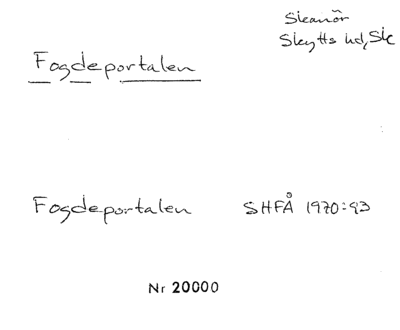 Skanör
Skytts hd, Sk
Fogdeportalen
Fogdeportalen SHFÅ 1970:93
Nr 20000